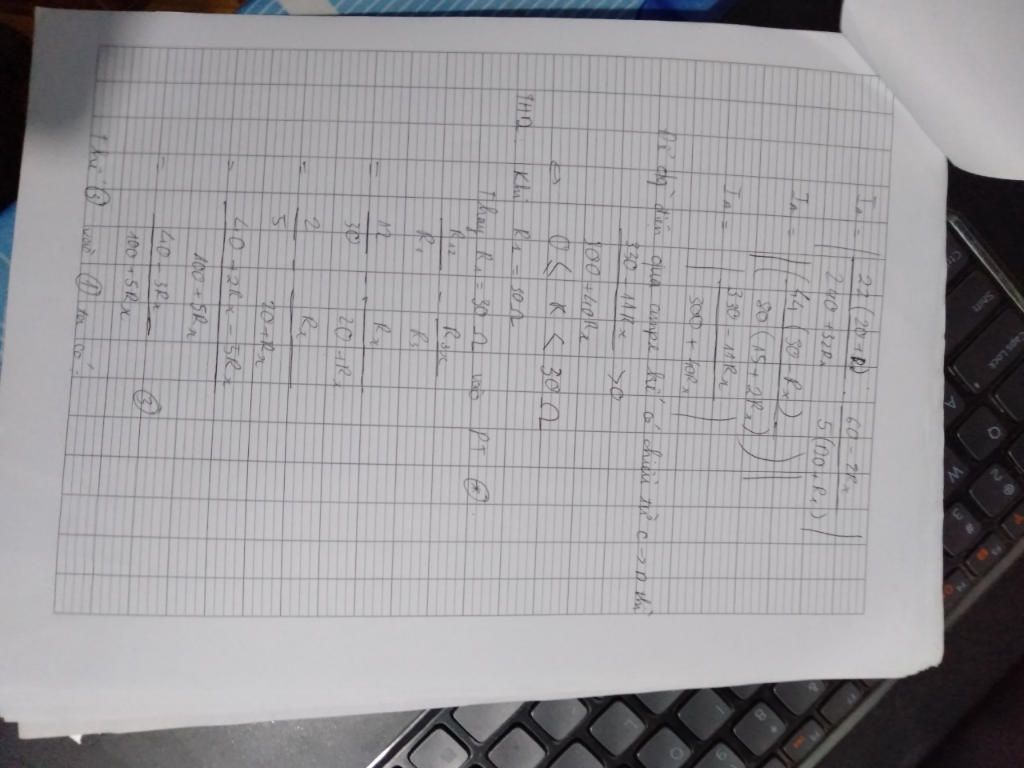 I_A = | 22 (20 + R) / 240 + 32Rx · 60 - 2Rx / 5(20 + Rx) |
I_A = | 44 (30 - Rx) / 80 (15 + 2Rx) |
I_A = | 330 - 11Rx / 300 + 40Rx |
Để dđ điện qua ampe kế có chiều từ C → D thì
330 - 11Rx / 300 + 40Rx > 0
⇔ 0 ≤ R < 30 Ω
TH2: Khi
Thay R1 = 30 Ω vào PT (*)
R12 / R1 - R3x / R3
= 12 / 30 - Rx / 20 + Rx
= 2 / 5 - Rx / 20 + Rx
= 40 + 2Rx - 5Rx / 100 + 5Rx
= 40 - 3Rx / 100 + 5Rx (3)
Thế (3) vào (1) ta có: